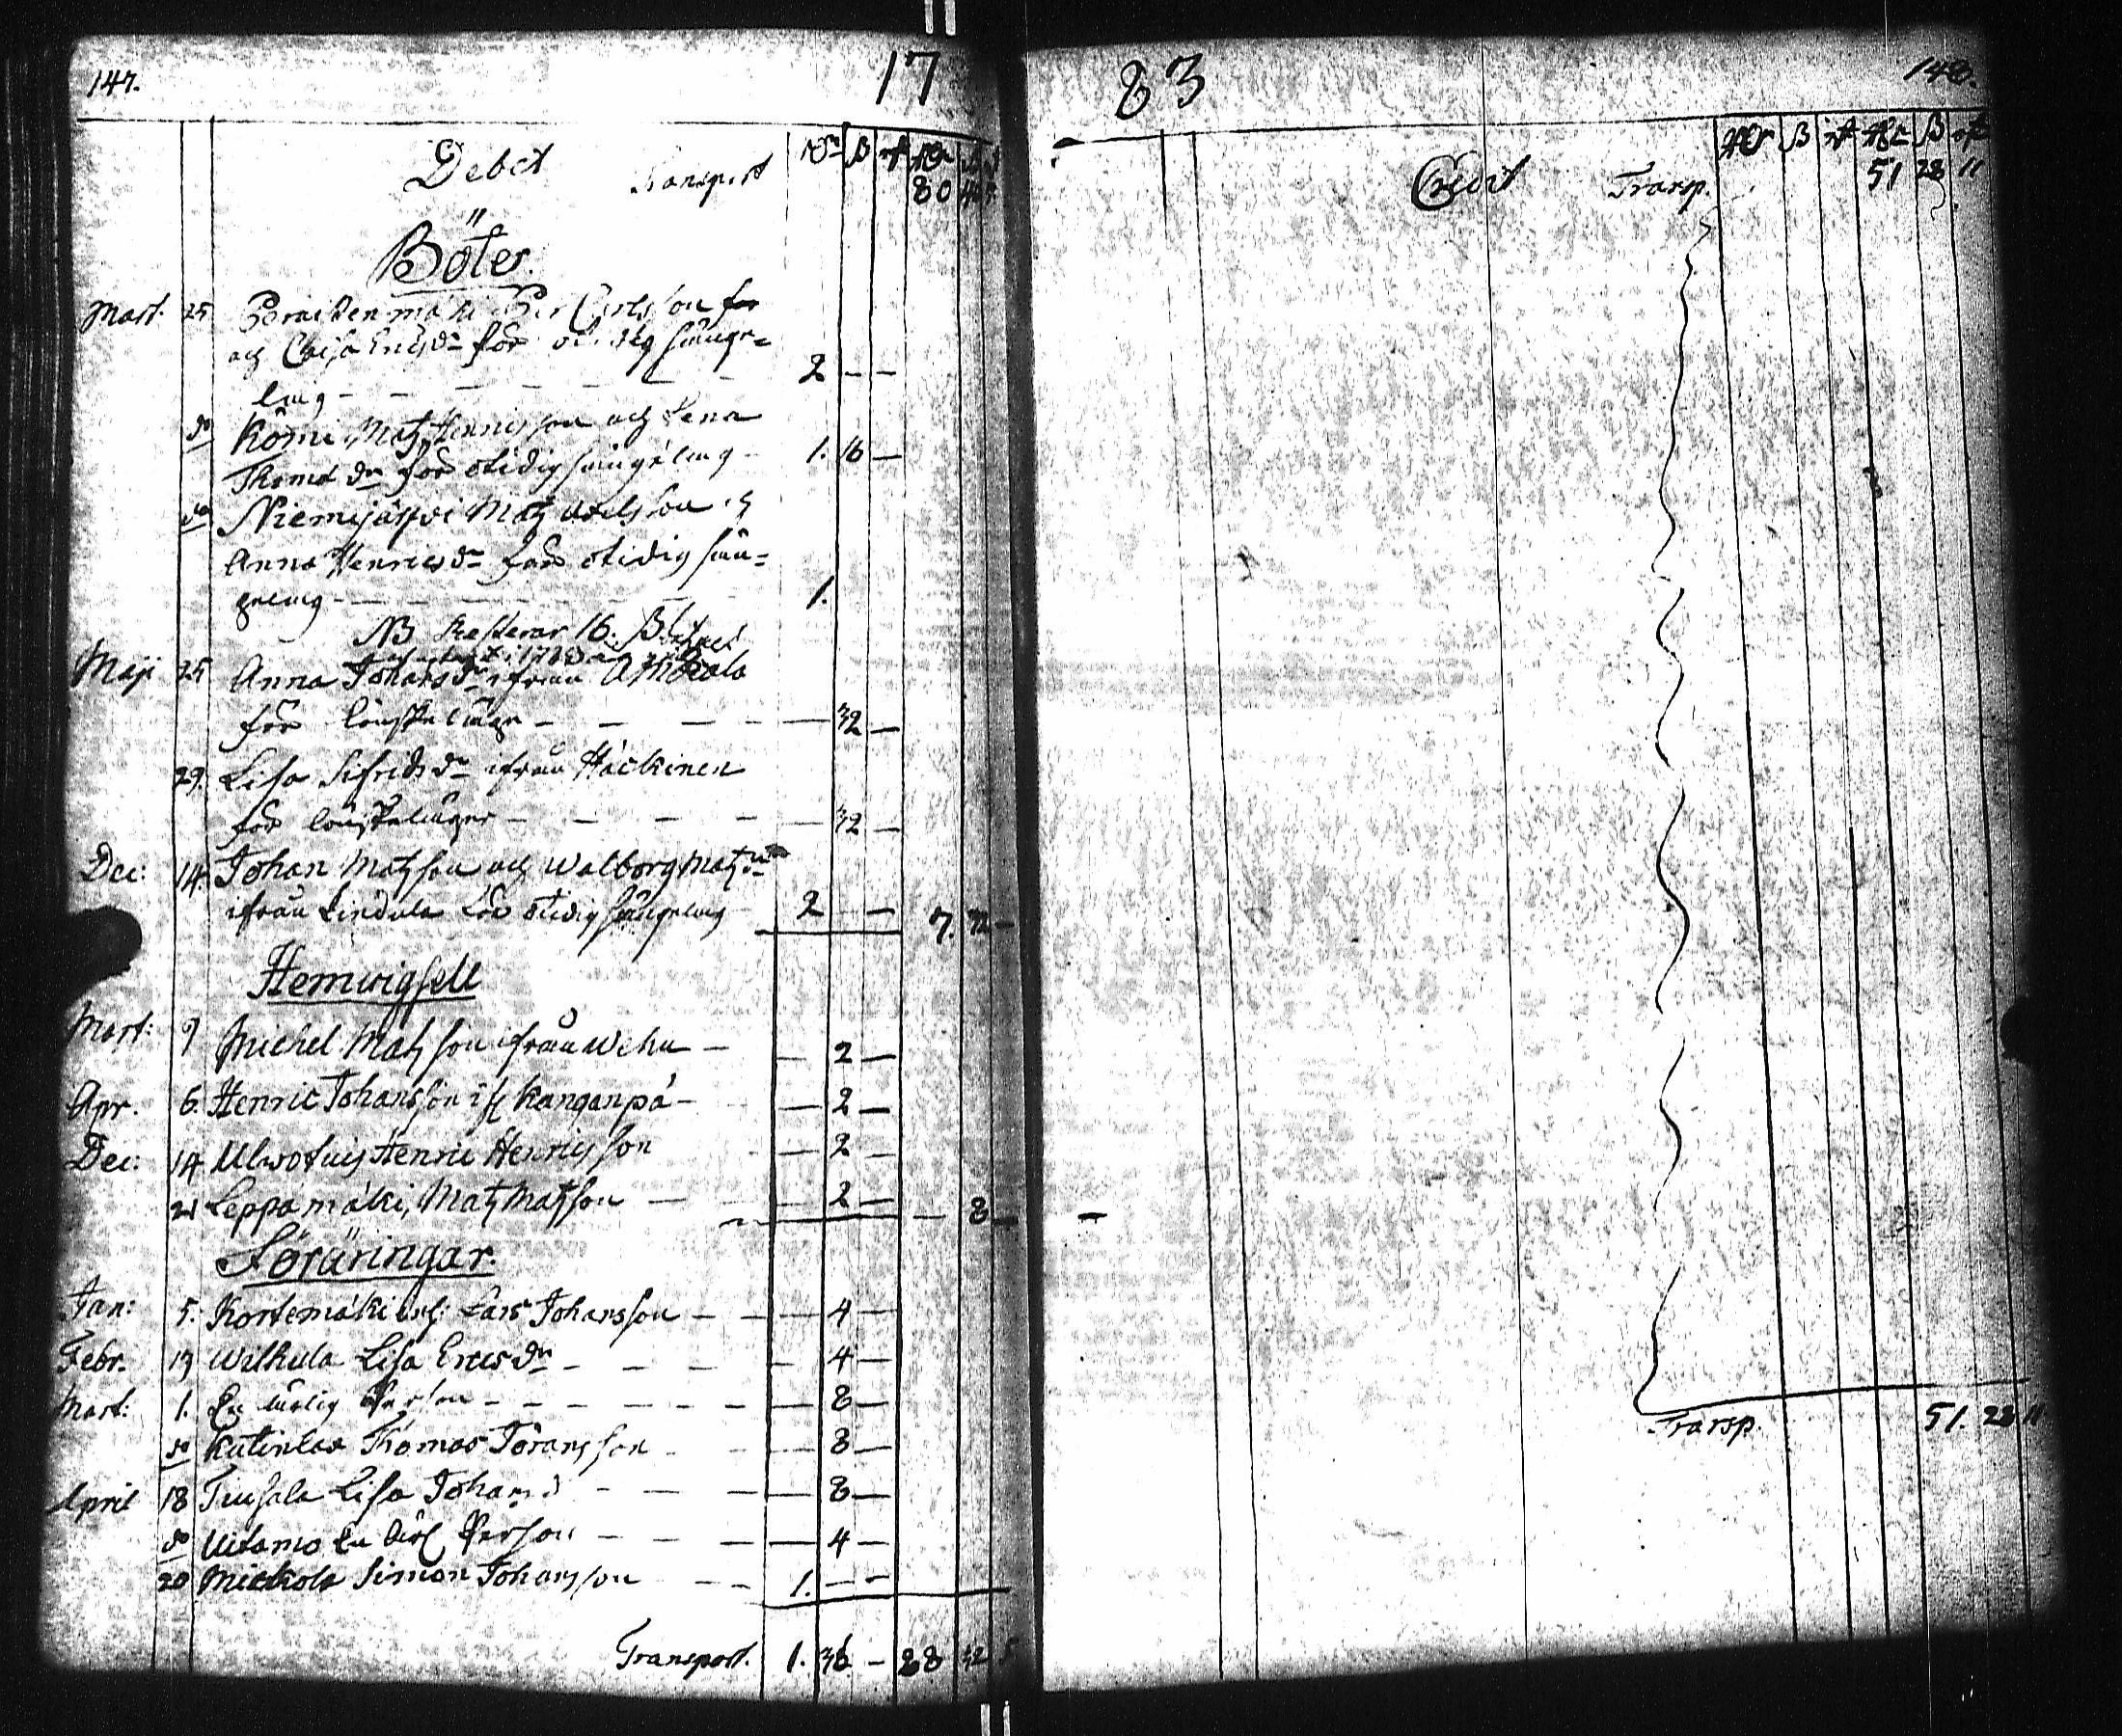 147.
17
Debet
Transport
Rdr ß rf Rdr
80
Böter.
Mart. 25 Per Carlsson
och Caisa Ericsdr för otidig sänge=
lag - - - 2 - -
do Körni Matz Hennicsson och Lena
Thomædr för otidig sängelag - 1. 16 -
do Niemijärfvi Matz
Anna Henricsdr för otidig sän=
gelag - - - 1.
NB Resterar 16. ß
Maji 25 Anna Johansdr ifrån
för lönskeläge - - - 32 -
29. Lisa Sifridsdr ifrån Häckinen
för lönskeläger - - - 32 -
Dec: 14. Johan Matzson och Walborg Matzdr
ifrån Lindula för otidig sängelag 2 - 7. 32 -
Hemwigsell
Mart: 9 Michel Matzson ifrån Wehu - - 2 -
Apr. 6. Henric Johansson if Kanganpä - - 2 -
Dec: 14 Henric Henricsson - 2 -
21 Leppämäki, Matz Matzson - - 2 - - 8 -
Föräringar.
Jan: 5. Kortemäki Lars Johansson - - - 4 -
Febr. 19 Wilhula Lisa Ericsdr - - - 4 -
Mart: 1. En ärlig Person - - - 8 -
do Kutinlax Thomas Göransson - - 8 -
April 18 Tiusala Lisa Johansd - - - 8 -
do Uitamo En ärl Person - - - 4 -
20 Mickola Simon Johansson - - 1. - -
Transport. 1. 36 - 88 32 5
83
148.
Credit
Transp.
Rdr ß rf Rdr ß rf
51 28 11
Transp.
51. 28 11